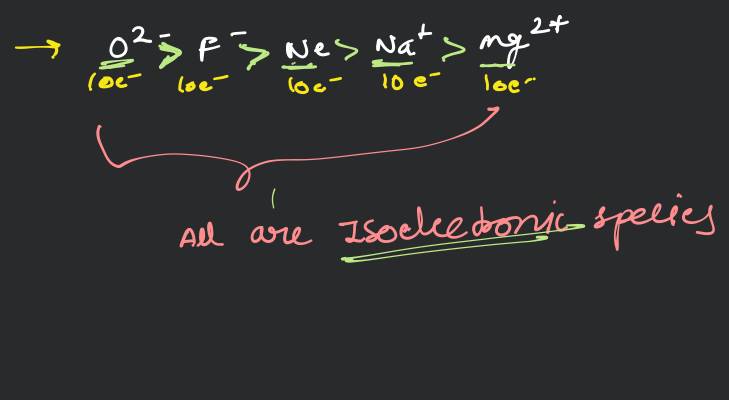 → O²⁻ > F⁻ > Ne > Na⁺ > Mg²⁺
10e⁻ 10e⁻ 10e⁻ 10e⁻ 10e⁻
All are Isoelectronic species